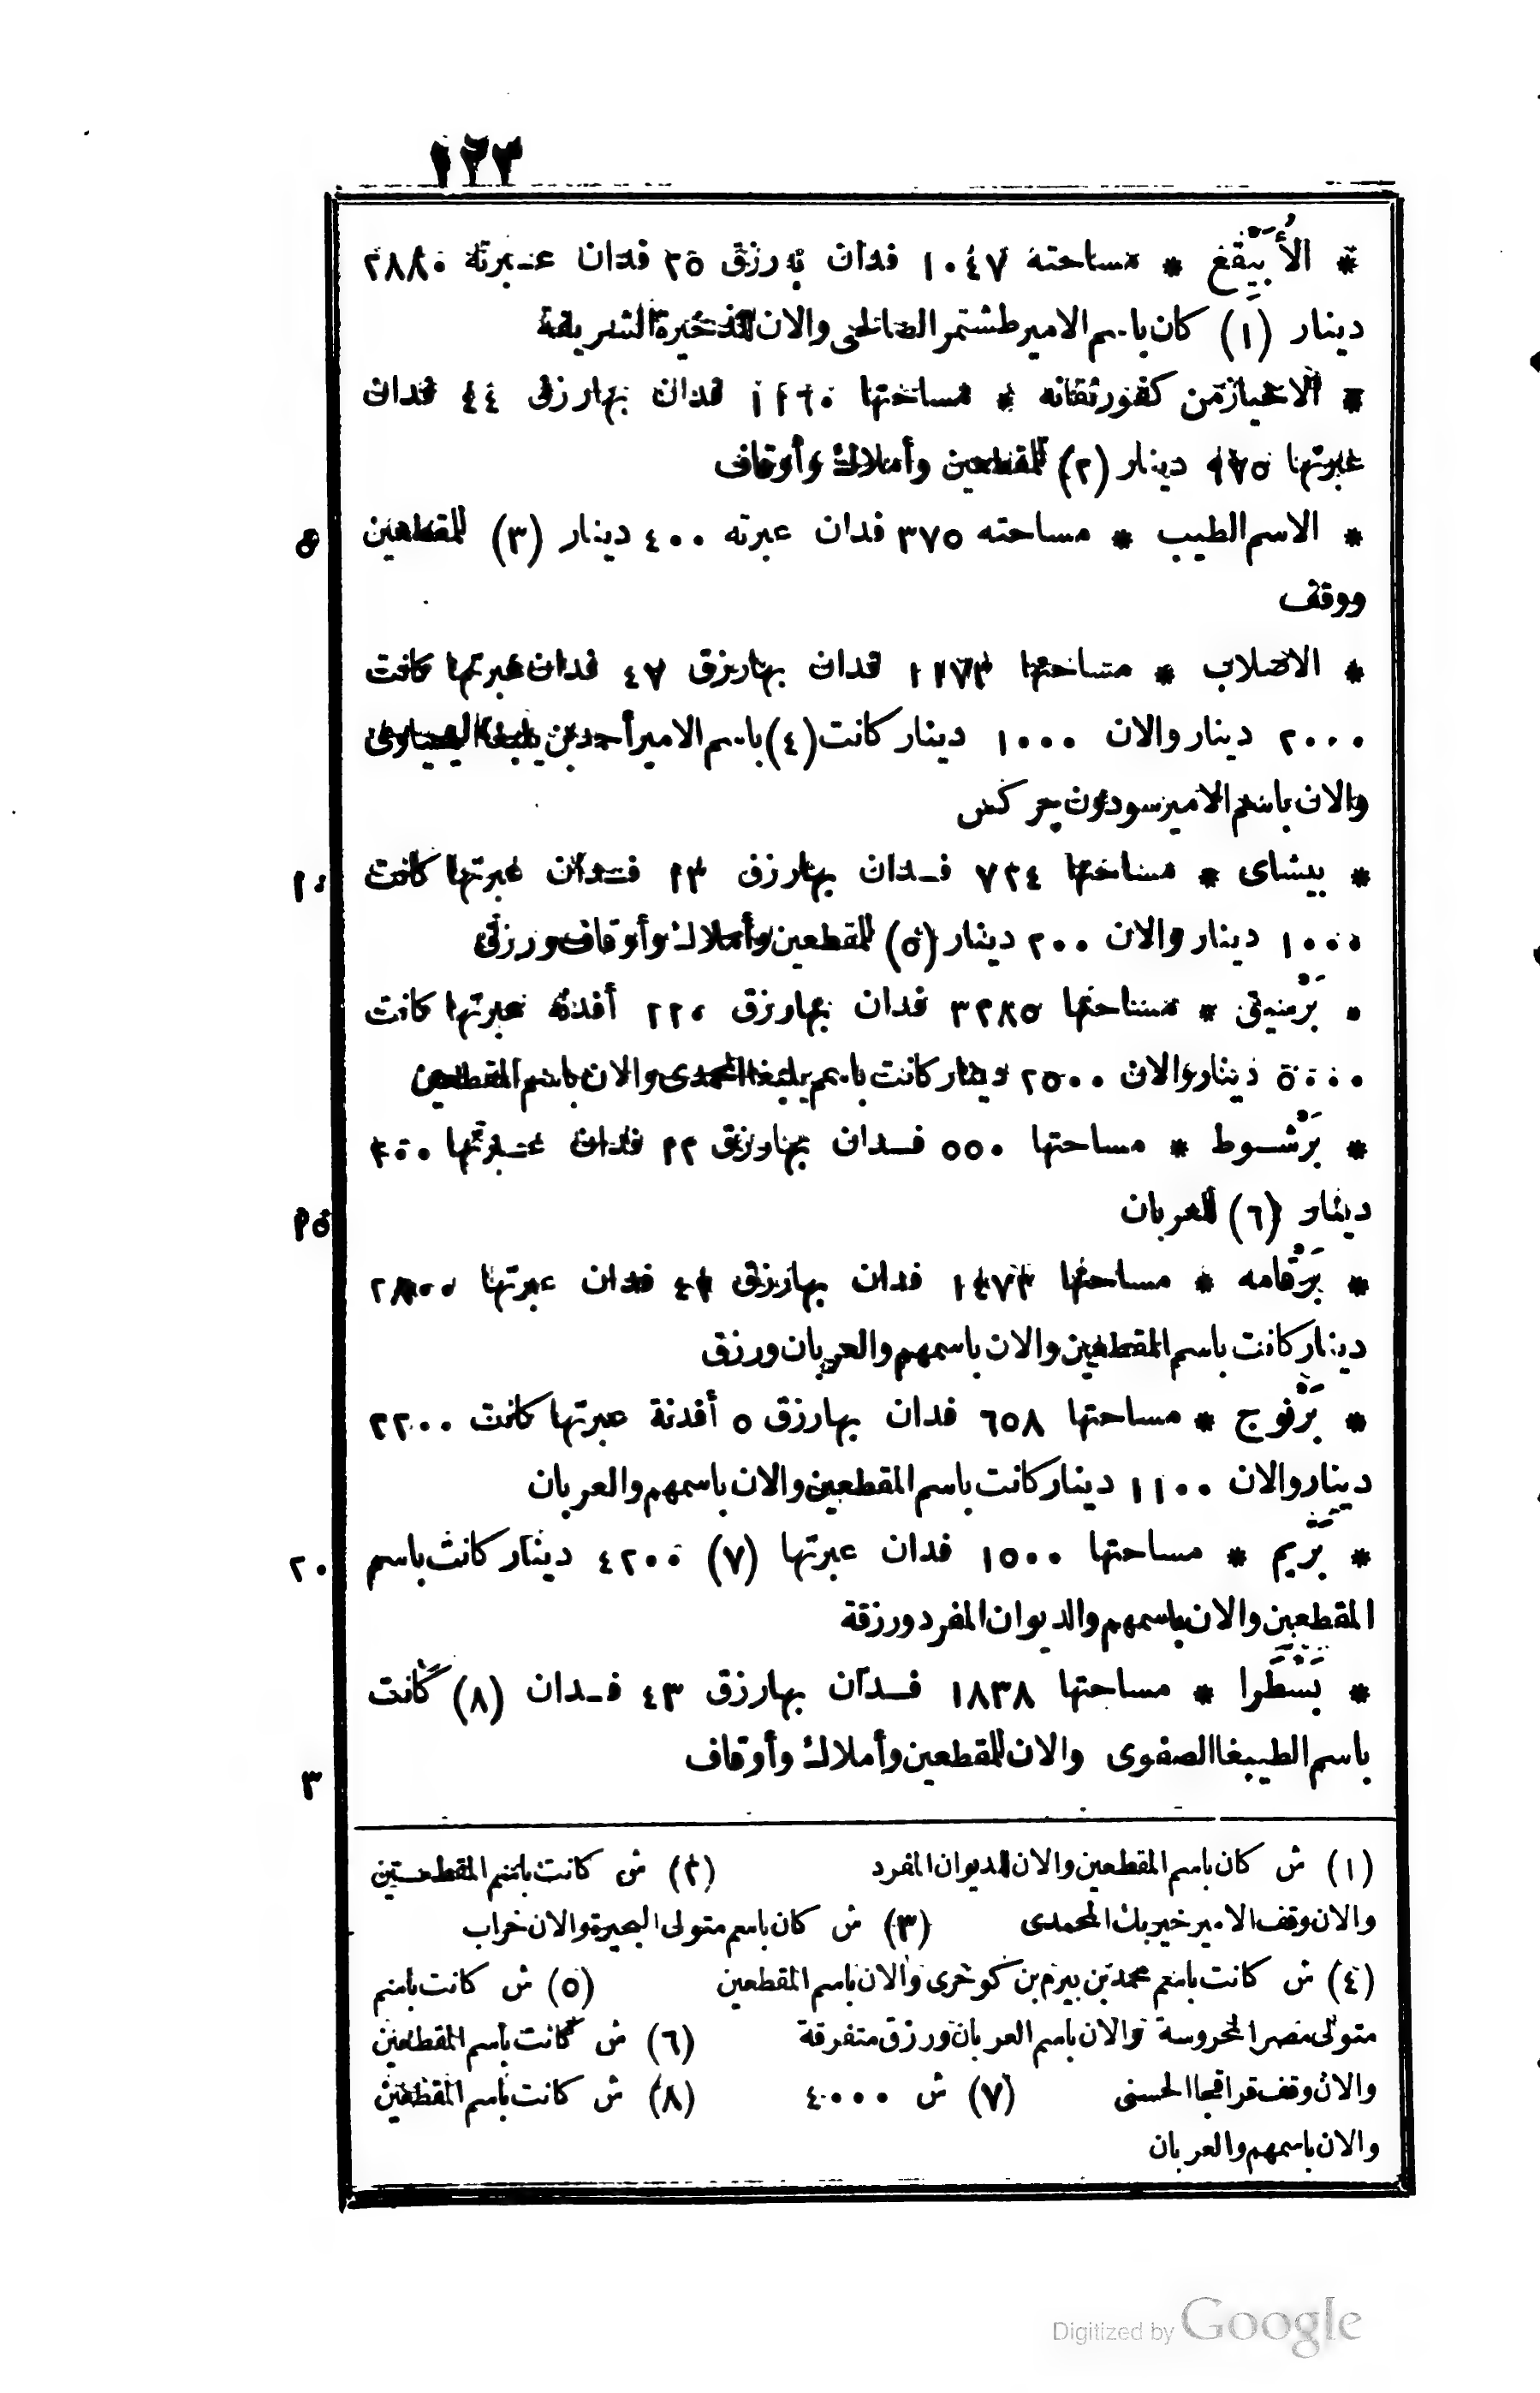 ١٢٣
* الأُبَيْقِع * مساحته ١٠٤٧ فدان به رزق ٢٥ فدان عبرته ٢٨٨٠
دينار (١) كان باسم الامير طشتمر الصالحى والان للذخيرة الشريفة
* الاحياز من كفور نقانه * مساحتها ١١٦٠ فدان بها رزق ٤٤ فدان
عبرتها دينار (٢) للمقطعين وأملاك وأوقاف
* الاسم الطيب * مساحته ٣٧٥ فدان عبرته ٤٠٠ دينار (٣) للمقطعين
٥
ووقف
* الاصلاب * مساحتها ١١٧٣ فدان بها رزق ٤٧ فدان عبرتها كانت
٢٠٠٠ دينار والان ١٠٠٠ دينار كانت (٤) باسم الامير أحمد بن يلبغا اليحياوى
والان باسم الامير سودون چركس
* بيشاى * مساحتها ٧٢٤ فدان بها رزق ١٣ فدان عبرتها كانت
١٠
١٠٠٠ دينار والان ٢٠٠ دينار (٥) للمقطعين وأملاك وأوقاف ورزق
* بَرْسيق * مساحتها ٣٢٨٥ فدان بها رزق أفدنة عبرتها كانت
٥٠٠٠ دينار والان ٢٥٠٠ دينار كانت باسم يلبغا المحمدى والان باسم المقطعين
* بَرْشوط * مساحتها ٥٥٠ فدان بها رزق ٢٢ فدان عبرتها ٤٠٠
دينار (٦) للعربان
١٥
* بَرْقامه * مساحتها ١٤٧٣ فدان بها رزق فدان عبرتها ٢٨٠٠
دينار كانت باسم المقطعين والان باسمهم والعربان ورزق
* بَرْنوج * مساحتها ٦٥٨ فدان بها رزق ٥ أفدنة عبرتها كانت ٢٢٠٠
دينار والان ١١٠٠ دينار كانت باسم المقطعين والان باسمهم والعربان
* بَرْيم * مساحتها ١٥٠٠ فدان عبرتها (٧) ٤٢٠٠ دينار كانت باسم
٢٠
المقطعين والان باسمهم والديوان المفرد ورزقة
* بَسَنْطَرا * مساحتها ١٨٣٨ فدان بها رزق ٤٣ فدان (٨) كانت
باسم الطيبغا الصفوى والان للمقطعين وأملاك وأوقاف
٣
(١) ش كان باسم المقطعين والان للديوان المفرد (٢) ش كانت باسم المقطعين
والان وقف الامير خير بك المحمدى (٣) ش كان باسم متولى البحيرة والان خراب
(٤) ش كانت باسم محمد بن بيرم بن كوخرى والان باسم المقطعين (٥) ش كانت باسم
متولى مصر المحروسة والان باسم العربان ورزق متفرقة (٦) ش كانت باسم المقطعين
والان وقف قراقجا الحسنى (٧) ش ٤٠٠٠ (٨) ش كانت باسم المقطعين
والان باسمهم والعربان
Digitized by Google